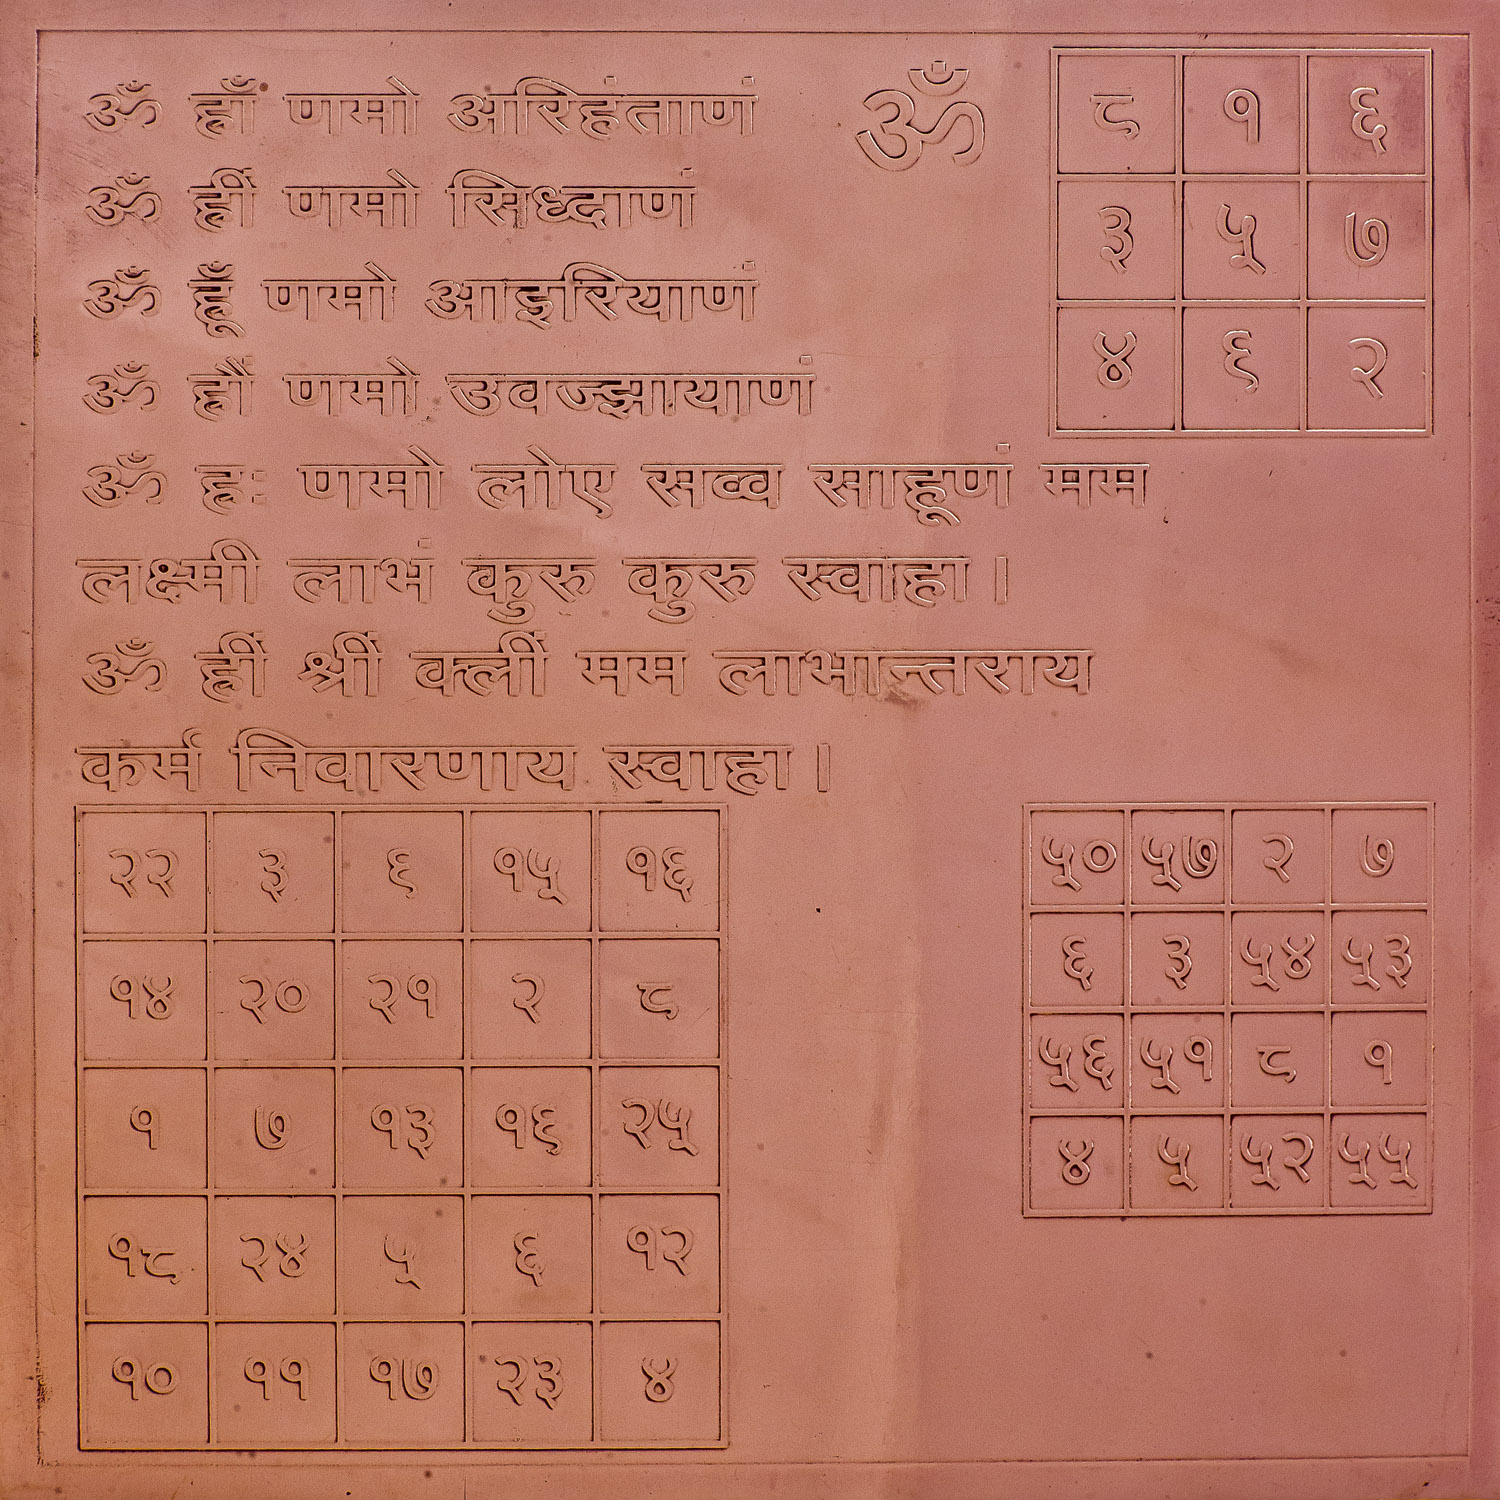 ॐ ह्राँ णमो अरिहंताणं
ॐ
ॐ ह्रीं णमो सिध्दाणं
ॐ ह्रूँ णमो आइरियाणं
ॐ ह्रौं णमो उवज्झायाणं
ॐ ह्रः णमो लोए सव्व साहूणं मम
लक्ष्मी लाभं कुरु कुरु स्वाहा।
ॐ ह्रीं श्रीं क्लीं मम लाभान्तराय
कर्म निवारणाय स्वाहा।
८ १ ६
३ ५ ७
४ ९ २
२२ ३ ९ १५ १६
१४ २० २१ २ ८
१ ७ १३ १९ २५
१८ २४ ५ ६ १२
१० ११ १७ २३ ४
५० ५७ २ ७
६ ३ ५४ ५३
५६ ५१ ८ १
४ ५ ५२ ५५